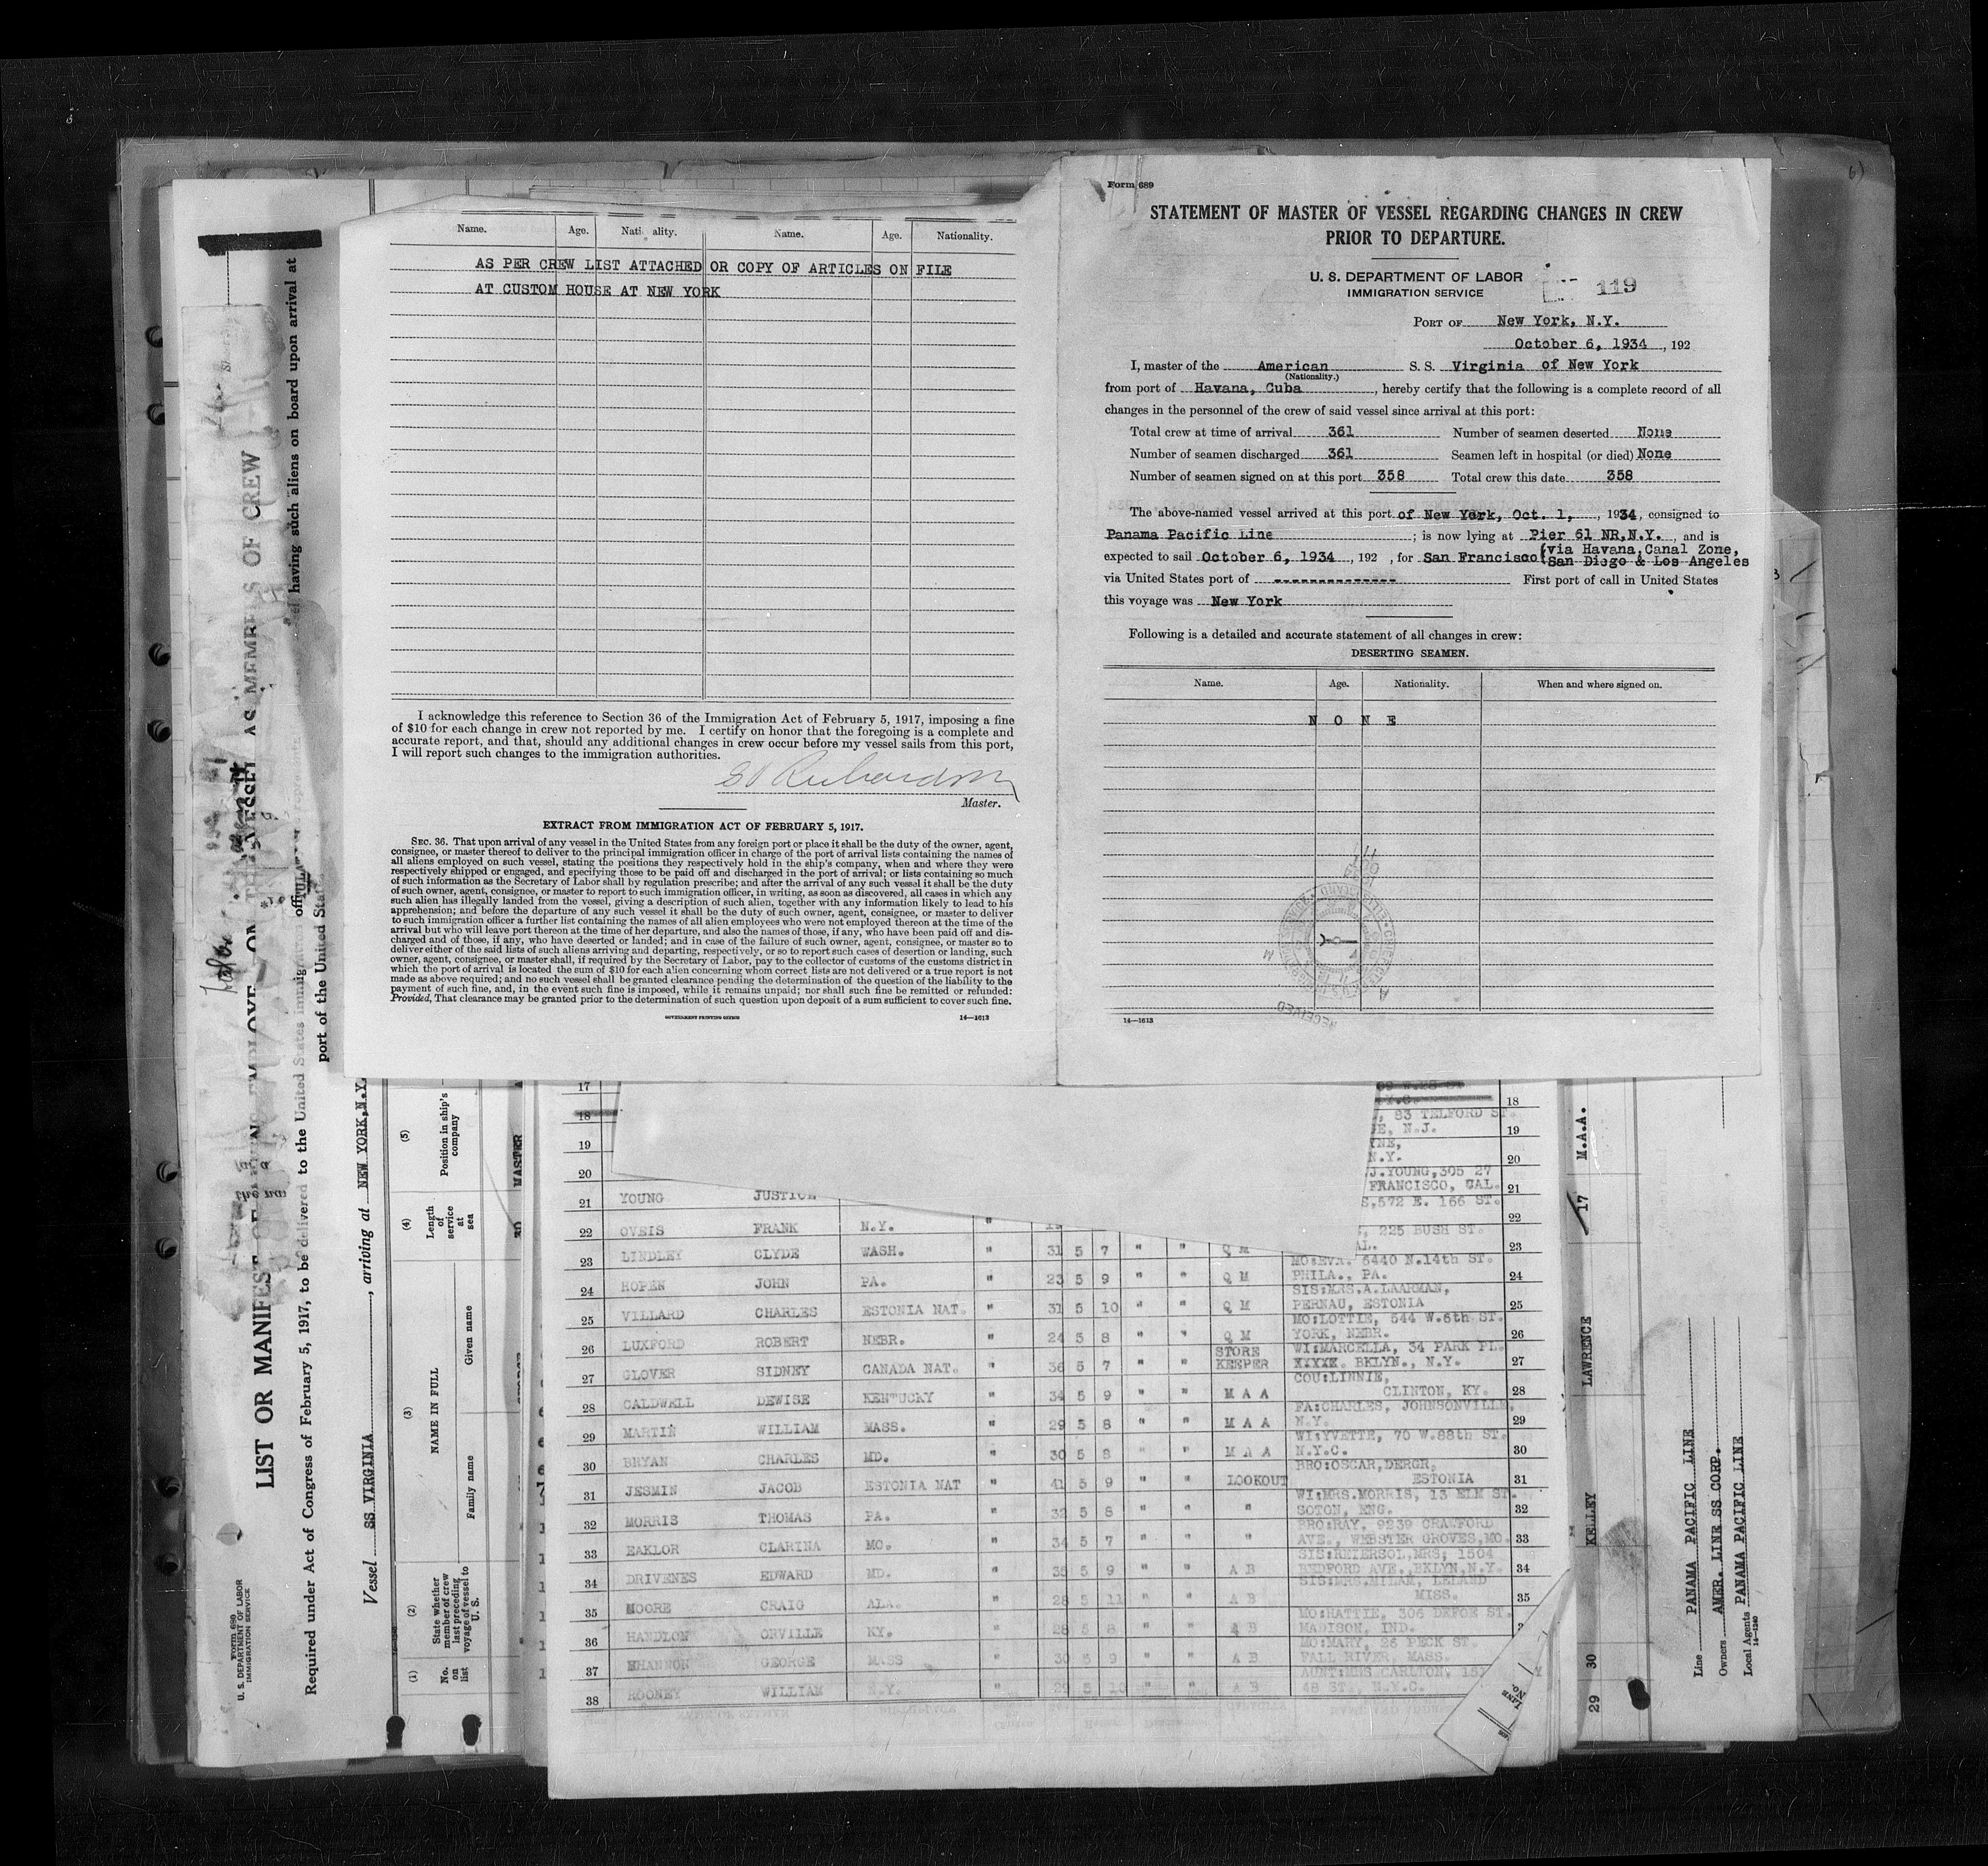 Name. Age. Nati ality. Name. Age. Nationality.
AS PER CREW LIST ATTACHED OR COPY OF ARTICLES ON FILE
AT CUSTOM HOUSE AT NEW YORK
I acknowledge this reference to Section 36 of the Immigration Act of February 5, 1917, imposing a fine
of $10 for each change in crew not reported by me. I certify on honor that the foregoing is a complete and
accurate report, and that, should any additional changes in crew occur before my vessel sails from this port,
I will report such changes to the immigration authorities.
Richardson
Master.
EXTRACT FROM IMMIGRATION ACT OF FEBRUARY 5, 1917.
SEC. 36. That upon arrival of any vessel in the United States from any foreign port or place it shall be the duty of the owner, agent,
consignee, or master thereof to deliver to the principal immigration officer in charge of the port of arrival lists containing the names of
all aliens employed on such vessel, stating the positions they respectively hold in the ship's company, when and where they were
respectively shipped or engaged, and specifying those to be paid off and discharged in the port of arrival; or lists containing so much
of such information as the Secretary of Labor shall by regulation prescribe; and after the arrival of any such vessel it shall be the duty
of such owner, agent, consignee, or master to report to such immigration officer, in writing, as soon as discovered, all cases in which any
such alien has illegally landed from the vessel, giving a description of such alien, together with any information likely to lead to his
apprehension; and before the departure of any such vessel it shall be the duty of such owner, agent, consignee, or master to deliver
to such immigration officer a further list containing the names of all alien employees who were not employed thereon at the time of the
arrival but who will leave port thereon at the time of her departure, and also the names of those, if any, who have been paid off and dis-
charged and of those, if any, who have deserted or landed; and in case of the failure of such owner, agent, consignee, or master so to
deliver either of the said lists of such aliens arriving and departing, respectively, or so to report such cases of desertion or landing, such
owner, agent, consignee, or master shall, if required by the Secretary of Labor, pay to the collector of customs of the customs district in
which the port of arrival is located the sum of $10 for each alien concerning whom correct lists are not delivered or a true report is not
made as above required; and no such vessel shall be granted clearance pending the determination of the question of the liability to the
payment of such fine, and, in the event such fine is imposed, while it remains unpaid; nor shall such fine be remitted or refunded:
Provided, That clearance may be granted prior to the determination of such question upon deposit of a sum sufficient to cover such fine.
GOVERNMENT PRINTING OFFICE 14—1613
Form 689
STATEMENT OF MASTER OF VESSEL REGARDING CHANGES IN CREW
PRIOR TO DEPARTURE.
U. S. DEPARTMENT OF LABOR
IMMIGRATION SERVICE
119
PORT OF New York, N.Y.
October 6, 1934, 192
I, master of the American S. S. Virginia of New York
(Nationality.)
from port of Havana, Cuba, hereby certify that the following is a complete record of all
changes in the personnel of the crew of said vessel since arrival at this port:
Total crew at time of arrival 361 Number of seamen deserted None
Number of seamen discharged 361 Seamen left in hospital (or died) None
Number of seamen signed on at this port 358 Total crew this date 358
The above-named vessel arrived at this port of New York, Oct. 1, , 1934, consigned to
Panama Pacific Line ; is now lying at Pier 61 NR,N.Y. , and is
expected to sail October 6, 1934 , 192 , for San Francisco (via Havana, Canal Zone,
San Diego & Los Angeles
via United States port of -------------- First port of call in United States
this voyage was New York
Following is a detailed and accurate statement of all changes in crew:
DESERTING SEAMEN.
Name. Age. Nationality. When and where signed on.
N O N E
RECEIVED
14—1613
17
18 18
, 83 TELFORD ST.
19 E, N.J. 19
YNE,
20 N.Y. 20
J.YOUNG,305 27
21 YOUNG JUSTICE FRANCISCO, CAL. 21
S,572 E. 166 ST.
22 OVEIS FRANK N.Y. " 22
, 225 BUSH ST.
23 LINDLEY CLYDE WASH. " 31 5 7 " " Q M AL. 23
MO:EVA. 6440 N.14th ST.
24 HOPEN JOHN PA. " 23 5 9 " " Q M PHILA., PA. 24
SIS:MRS.A.LAARMAN,
25 VILLARD CHARLES ESTONIA NAT. " 31 5 10 " " Q M PERNAU, ESTONIA 25
MO:LOTTIE, 544 W.6th ST.
26 LUXFORD ROBERT NEBR. " 24 5 8 " " Q M YORK, NEBR. 26
STORE WI:MARCELLA, 34 PARK PL.
27 GLOVER SIDNEY CANADA NAT. " 36 5 7 " " KEEPER XXXXX. BKLYN., N.Y. 27
COU:LINNIE,
28 CALDWELL DEWISE KENTUCKY " 34 5 9 " " M A A CLINTON, KY. 28
FA:CHARLES, JOHNSONVILLE,
29 MARTIN WILLIAM MASS. " 29 5 8 " " M A A N.Y. 29
WI:YVETTE, 70 W.88th ST.
30 BRYAN CHARLES MD. " 30 5 8 " " M A A N.Y.C. 30
BRO:OSCAR,DERGR,
31 JESMIN JACOB ESTONIA NAT " 41 5 9 " " LOOKOUT ESTONIA 31
WI:MRS.MORRIS, 13 ELM ST.
32 MORRIS THOMAS PA. " 32 5 8 " " " SOTON, ENG. 32
BRO:RAY, 9239 CRAWFORD
33 EAKLOR CLARINA MO. " 34 5 7 " " " AVE., WEBSTER GROVES,MO. 33
SIS:RETERSOL,MRS, 1504
34 DRIVENES EDWARD MD. " 35 5 9 " " A B BEDFORD AVE.,BKLYN,N.Y. 34
SIS:MRS.MILAM, LELAND
35 MOORE CRAIG ALA. " 28 5 11 " " A B MISS. 35
MO:HATTIE, 306 DEFOE ST.
36 HANDLON ORVILLE KY. " 28 5 8 " " A B MADISON, IND.
MO:MARY, 26 PECK ST.
37 SHANNON GEORGE MASS " 30 5 9 " " A B FALL RIVER, MASS.
AUNT:MRS CARLTON,
38 ROONEY WILLIAM N.Y. " 29 5 10 " " A B 48 ST., N.Y.C.
Form 680
U. S. DEPARTMENT OF LABOR
IMMIGRATION SERVICE
LIST OR MANIFEST OF ALIENS EMPLOYED ON THE VESSEL AS MEMBERS OF CREW
Required under Act of Congress of February 5, 1917, to be delivered to the United States immigration officer
having such aliens on board upon arrival at
port of the United States
Vessel SS VIRGINIA, arriving at NEW YORK,N.Y.
(1) (2) (3) (4) (5)
No. on list
State whether member of crew last preceding voyage of vessel to U. S.
NAME IN FULL
Family name Given name
Length of service at sea
Position in ship's company
MASTER
29
30 KELLEY LAWRENCE 17 M.A.A.
Line PANAMA PACIFIC LINE
Owners AMER. LINE SS CORP.
Local Agents PANAMA PACIFIC LINE
14—1240
LINE No.